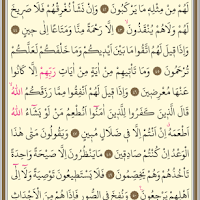 لَهُم مِّن مِّثْلِهِۦ مَا يَرْكَبُونَ ٤٢ وَإِن نَّشَأْ نُغْرِقْهُمْ فَلَا صَرِيخَ
لَهُمْ وَلَا هُمْ يُنقَذُونَ ٤٣ إِلَّا رَحْمَةً مِّنَّا وَمَتَٰعًا إِلَىٰ حِينٍ ٤٤
وَإِذَا قِيلَ لَهُمُ ٱتَّقُوا۟ مَا بَيْنَ أَيْدِيكُمْ وَمَا خَلْفَكُمْ لَعَلَّكُمْ
تُرْحَمُونَ ٤٥ وَمَا تَأْتِيهِم مِّنْ ءَايَةٍ مِّنْ ءَايَٰتِ رَبِّهِمْ إِلَّا كَانُوا۟
عَنْهَا مُعْرِضِينَ ٤٦ وَإِذَا قِيلَ لَهُمْ أَنفِقُوا۟ مِمَّا رَزَقَكُمُ ٱللَّهُ
قَالَ ٱلَّذِينَ كَفَرُوا۟ لِلَّذِينَ ءَامَنُوٓا۟ أَنُطْعِمُ مَن لَّوْ يَشَآءُ ٱللَّهُ
أَطْعَمَهُۥٓ إِنْ أَنتُمْ إِلَّا فِى ضَلَٰلٍ مُّبِينٍ ٤٧ وَيَقُولُونَ مَتَىٰ هَٰذَا
ٱلْوَعْدُ إِن كُنتُمْ صَٰدِقِينَ ٤٨ مَا يَنظُرُونَ إِلَّا صَيْحَةً وَٰحِدَةً
تَأْخُذُهُمْ وَهُمْ يَخِصِّمُونَ ٤٩ فَلَا يَسْتَطِيعُونَ تَوْصِيَةً وَلَآ إِلَىٰٓ
أَهْلِهِمْ يَرْجِعُونَ ٥٠ وَنُفِخَ فِى ٱلصُّورِ فَإِذَا هُم مِّنَ ٱلْأَجْدَاثِ